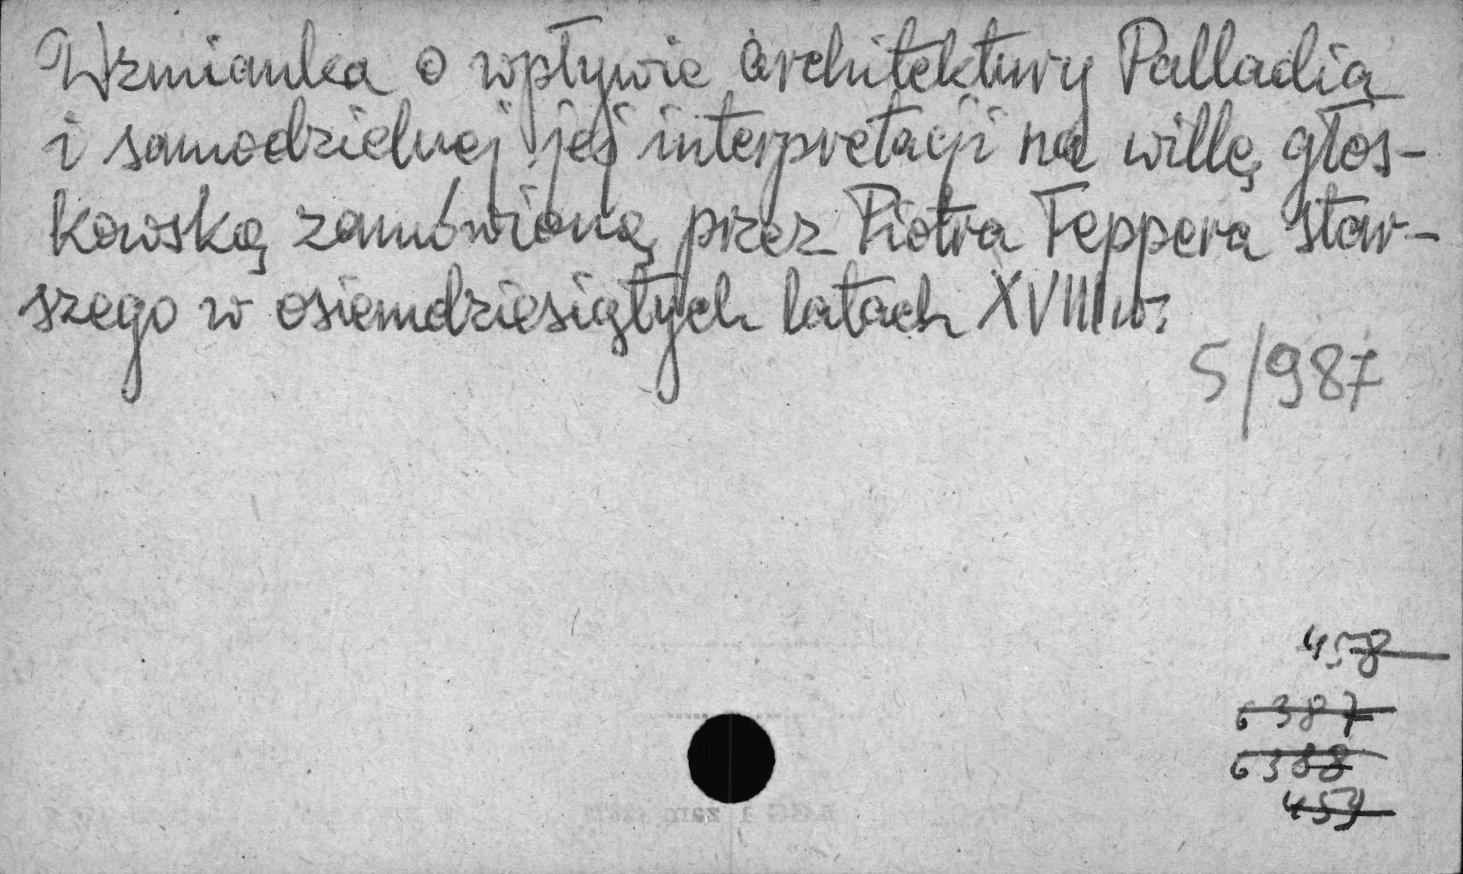 Wzmianka o wpływie architektury Palladia
i samodzielnej jej interpretacji na willę głos-
kowską zamówioną przez Piotra Teppera star-
szego w osiemdziesiątych latach XVIII w.
5/987
458
6387
6388
459